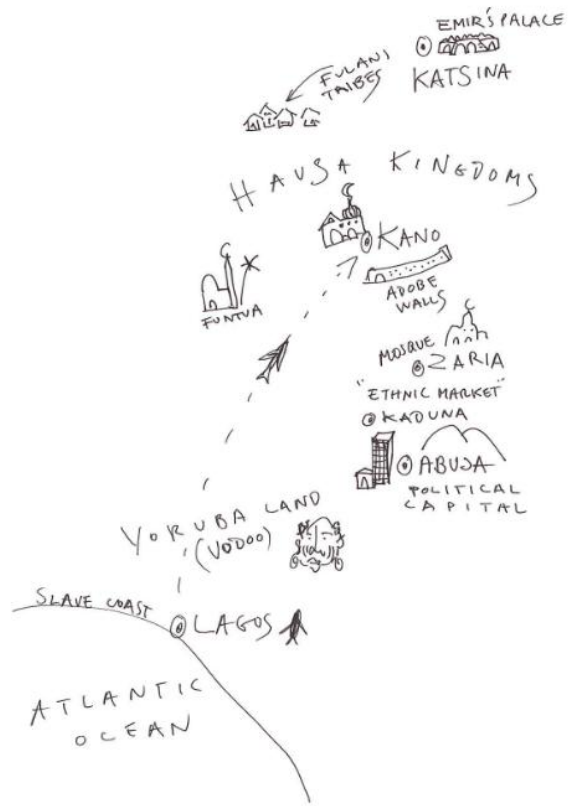 EMIR'S PALACE
KATSINA
FULANI
TRIBES
HAUSA KINGDOMS
KANO
ADOBE
WALLS
FUNTUA
MOSQUE
ZARIA
"ETHNIC MARKET"
KADUNA
ABUJA
POLITICAL
CAPITAL
YORUBA LAND
(VODOO)
SLAVE COAST
LAGOS
ATLANTIC
OCEAN